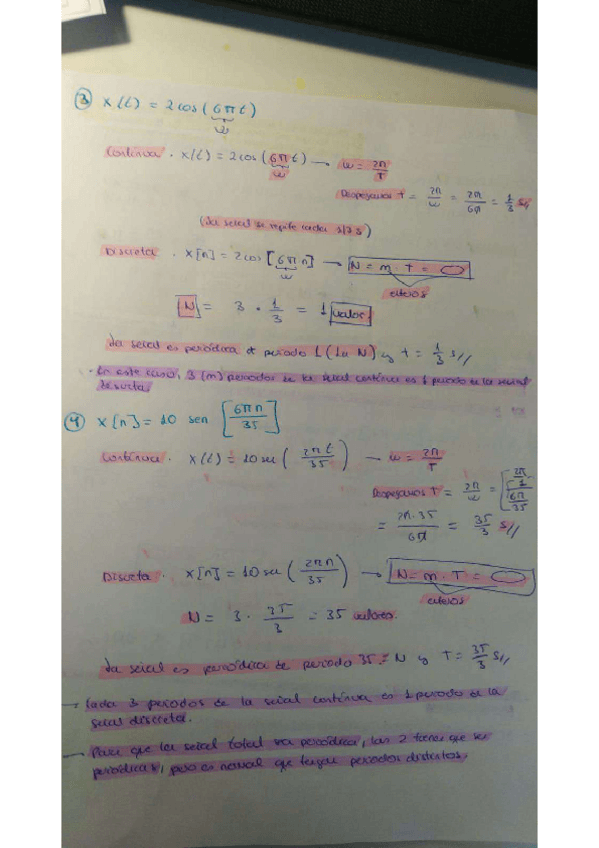 ③ x(t) = 2cos(6πt)
ω
Continua . x(t) = 2cos(6πt) → ω = 2π/T
ω
Despejamos T = 2π/ω = 2π/6π = 1/3 s//
(La señal se repite cada 1/3 s)
Discreta . x[n] = 2cos[6πn] → N = m · T =
ω
enteros
N = 3 · 1/3 = 1 valor.
La señal es periódica de periodo 1 (la N) y T = 1/3 s//
· En este caso, 3 (m) periodos de la señal continua es 1 periodo de la señal
discreta.
④ x[n] = 10 sen [6πn/35]
Continua . x(t) = 10 sen (2πt/35) → ω = 2π/T
Despejamos T = 2π/ω = [2π/1 / 6π/35]
= 2π·35/6π = 35/3 s//
Discreta . x[n] = 10 sen (2πn/35) → N = m · T =
enteros
N = 3 · 35/3 = 35 valores.
La señal es periódica de periodo 35 = N y T = 35/3 s//
→ Cada 3 periodos de la señal continua es 1 periodo de la
señal discreta.
→ Para que la señal total sea periódica, las 2 tienen que ser
periódicas, pero es normal que tengan periodos distintos.